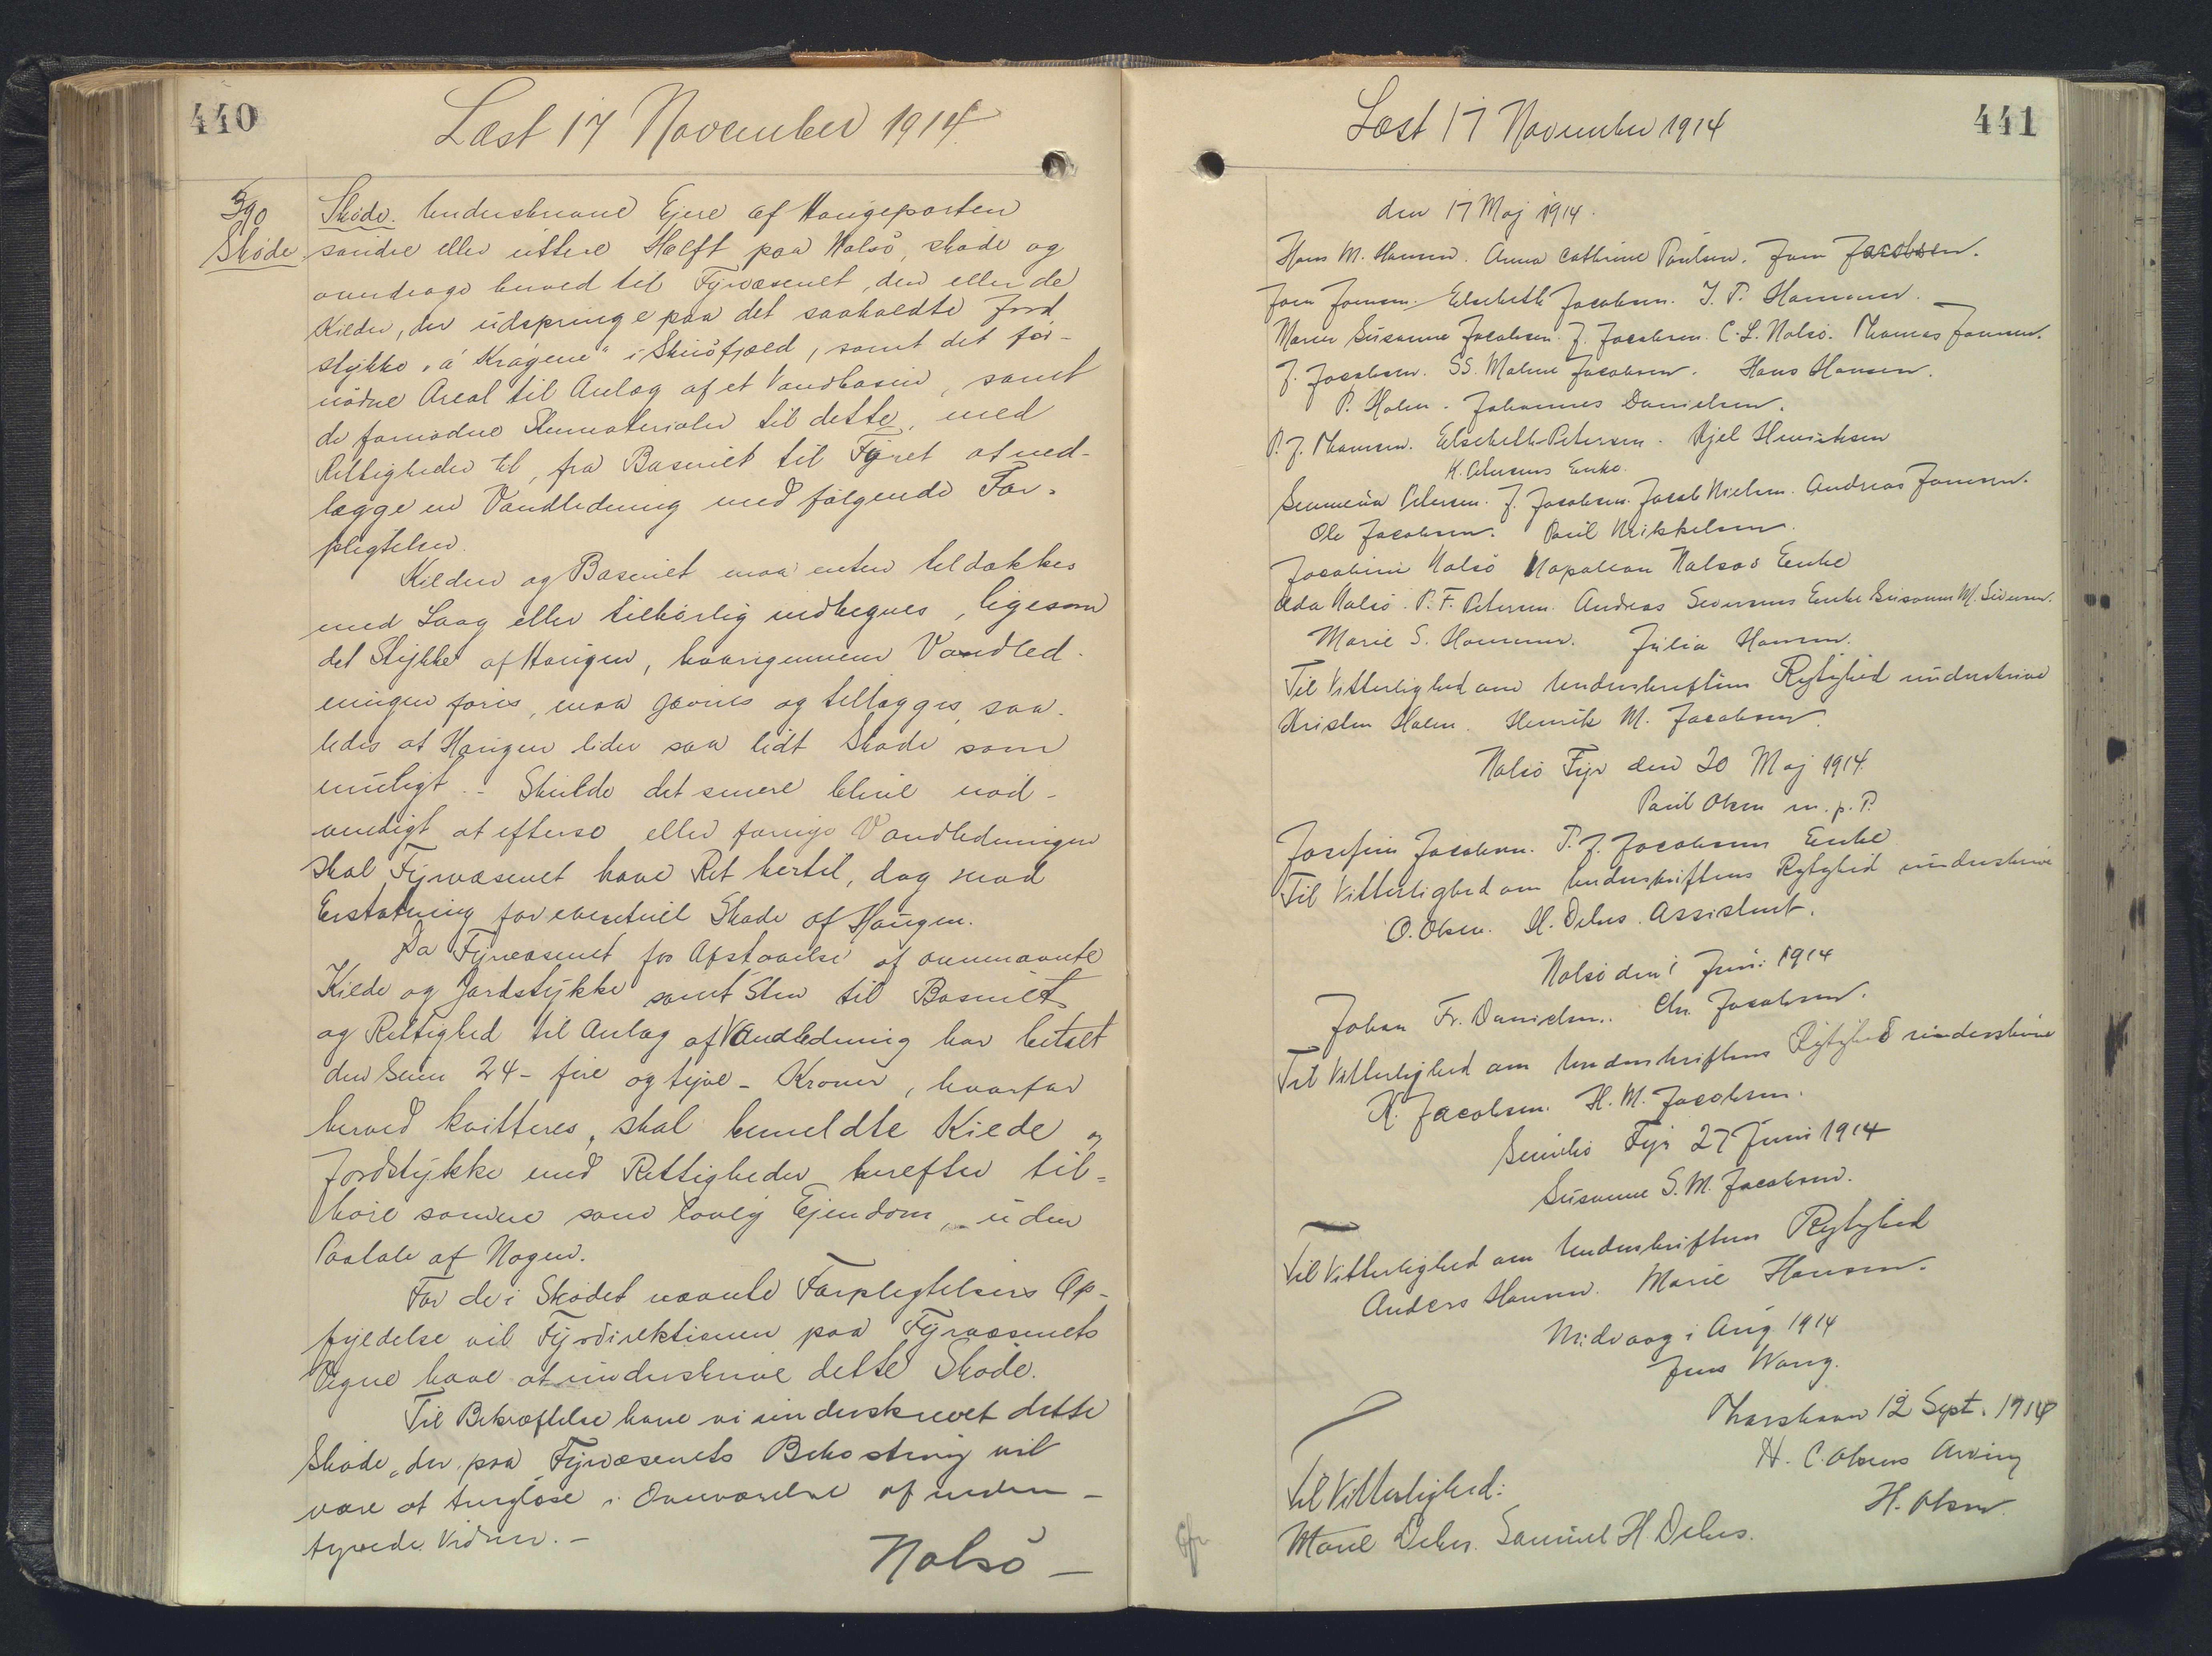 440
Læst 17 November 1914.
390
Skøde
Skøde. Underskrevne Ejere af Haugeparten
søndre eller üttere Hælft paa Nolsö, skøde og
overdrage herved til Fyrvæsenet, den eller de
Kilder, der üdspringe paa det saakaldte Jord
stykke "á Krágene" i , samt det for-
nødne Areal til Anlæg af et Vandbasin, samt
de fornødne Stenmaterialer til dette, med
Rettigheder til, fra Basinet til Fyret at ned-
lægge en Vandledning med følgende For-
pligtelser.
Kilden og Basinet maa enten tildækkes
med Laag eller tilbørlig indhegnes, ligesom
det Stykke af Haugen, hvorigennem Vandled-
ningen føres, maa gøres og tillægges, saa-
ledes at Haugen lider saa lidt Skade som
müligt. - Skülde det senere blive nød-
vendigt at efterse eller forny Vandledningen
skal Fyrvæsenet have Ret hertil, dog mod
Erstatning for eventüel Skade af Haügen.
Da Fyrvæsenet for Afstaaelse af ovennævnte
Kilde og Jordstykke samt Sten til Basinet
og Rettighed til Anlæg af Vandledning har betalt
den Sum 24 - fire og tyve - Kroner, hvorfor
herved kvitteres, skal bemeldte Kilde og
Jordstykke med Rettigheder herefter til-
høre samme som lovlig Ejendom, üden
Paatale af Nogen.
For de i Skødet nævnte Forpligtelsers Op-
fyldelse vil Fyrdirektionen paa Fyrvæsenets
Vegne have at ünderskrive dette Skøde.
Til Bekræftelse have vi ünderskrevet dette
Skøde, der paa Fyrvæsenets Bekostning vil
være at tinglæse i Overværelse af neden-
tegnede Vidner. -
Nolsö -
441
Læst 17 November 1914
den 17 Maj 1914.
Hans M. Hansen. Anna Cathrine Poülsen. Joen Jacobsen.
Joen Joensen. Elsebeth Jacobsen. J. P. Hammer.
Maren Süsanne Jacobsen. J. Jacobsen. C. L. Nolsö. Thomas Joensen.
J. Jacobsen. SS. Malene Jacobsen. Hans Hansen.
P. Holm. Johannes Danielsen.
P. J. Thomsen. Elsebeth Petersen. Kjel Henriksen
K. Petersens Enke.
Petersen. J. Jacobsen. Jacob Nielsen. Andreas Joensen.
Ole Jacobsen. Poül Mikkelsen.
Jacobine Nolsö Napoleon Nolsøs Enke
Alda Nolsö. P. F. Petersen. Andreas Siversens Enke Süsanne M. Siversen.
Marie S. Hammer. Jülia Hansen.
Til Vitterlighed om Underskriftens Rigtighed ünderskrive
Kristen Holm. Henrik M. Jacobsen.
Nolsö Fyr den 20 Maj 1914.
Poül Olsen m. p. P.
Josefine Jacobsen. P. J. Jacobsens Enke
Til Vitterlighed om Underskriftens Rigtighed ünderskrive
O. Olsen. H. Debes. Assistent.
Nolsö den 1 Jüni 1914
Johan Fr. Danielsen. Chr. Jacobsen.
Til Vitterlighed om Underskriftens Rigtighed ünderskrive
K. Jacobsen. H. M. Jacobsen.
Fyr 27 Jüni 1914
Süsanne S. M. Jacobsen.
Til Vitterlighed om Underskriftens Rigtighed
Anders Hansen. Marie Hansen.
Midvaag i Aüg 1914
Jens Wang.
Thorshavn 12 Sept. 1914
H. C. Olsens Arving
H. Olsen.
Til Vitterlighed:
Marie Debes. Samüel H. Debes.